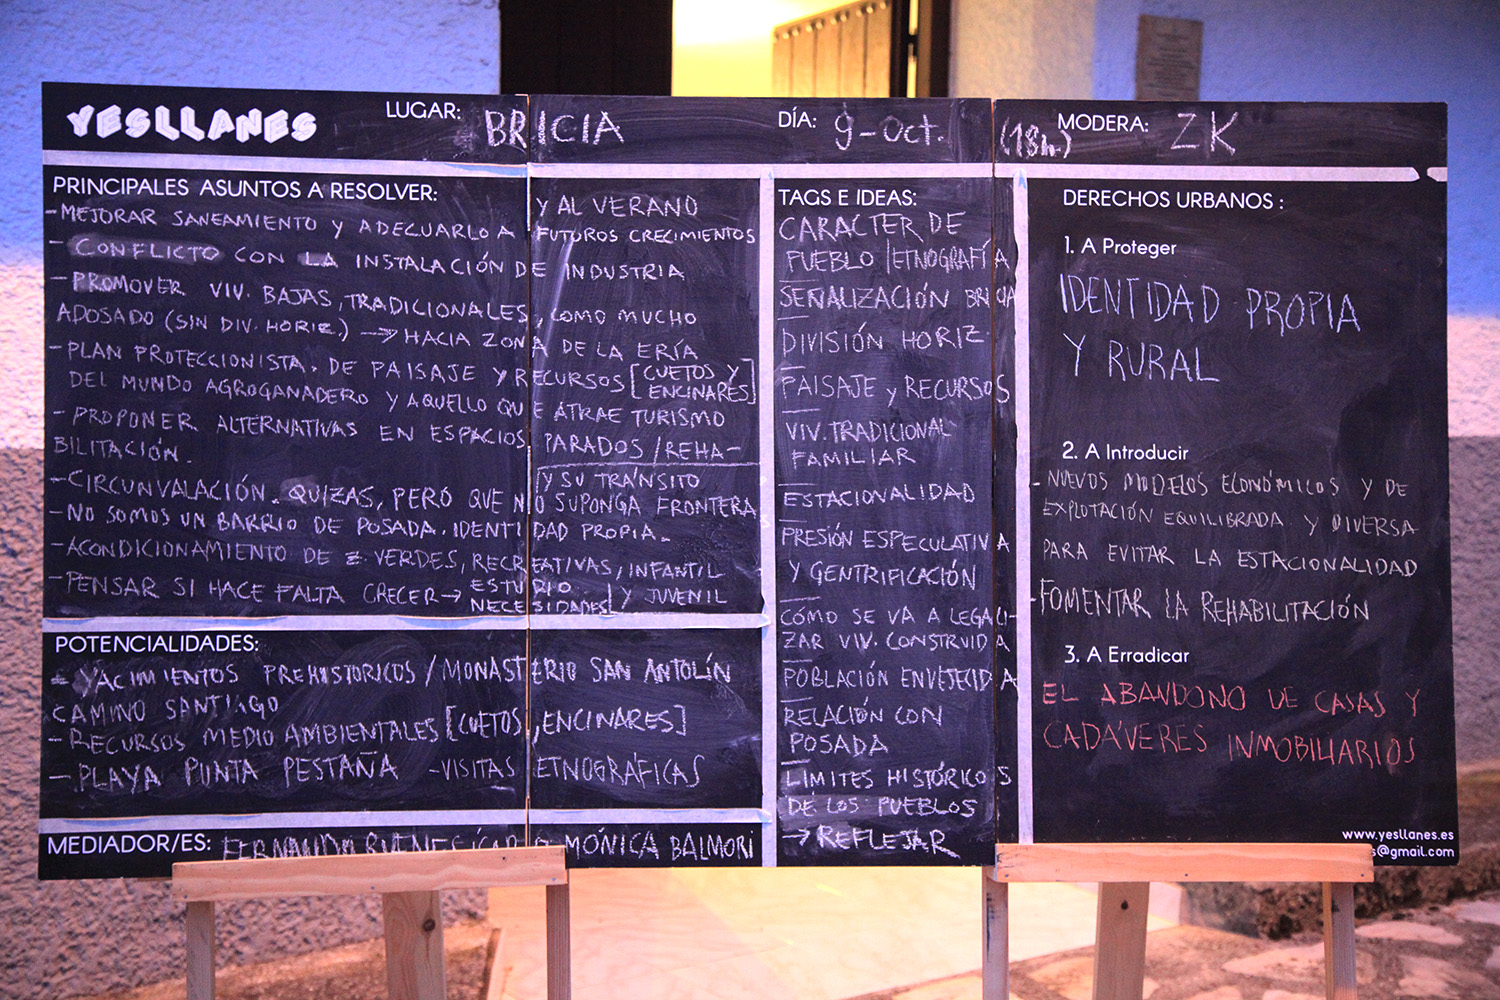 YESLLANES
LUGAR: BRICIA
DÍA: 9-Oct. (18h.)
MODERA: ZK
PRINCIPALES ASUNTOS A RESOLVER:
Y AL VERANO
-MEJORAR SANEAMIENTO Y ADECUARLO A FUTUROS CRECIMIENTOS
- CONFLICTO CON LA INSTALACIÓN DE INDUSTRIA
-PROMOVER VIV. BAJAS, TRADICIONALES, COMO MUCHO
ADOSADO (SIN DIV. HORIZ.) → HACIA ZONA DE LA ERÍA
-PLAN PROTECCIONISTA. DE PAISAJE Y RECURSOS [CUETOS Y ENCINARES]
DEL MUNDO AGROGANADERO Y AQUELLO QUE ATRAE TURISMO
-PROPONER ALTERNATIVAS EN ESPACIOS PARADOS/REHA-
BILITACIÓN.
Y SU TRÁNSITO
-CIRCUNVALACIÓN. QUIZAS, PERO QUE NO SUPONGA FRONTERA
-NO SOMOS UN BARRIO DE POSADA. IDENTIDAD PROPIA.
-ACONDICIONAMIENTO DE Z. VERDES, RECREATIVAS, INFANTIL
Y JUVENIL
-PENSAR SI HACE FALTA CRECER → ESTUDIO
NECESIDADES
POTENCIALIDADES:
- YACIMIENTOS PREHISTORICOS / MONASTERIO SAN ANTOLÍN
CAMINO SANTIAGO
-RECURSOS MEDIO AMBIENTALES [CUETOS, ENCINARES]
-PLAYA PUNTA PESTAÑA -VISITAS ETNOGRÁFICAS
MEDIADOR/ES: FERNANDO MÓNICA BALMORI
TAGS E IDEAS:
CARACTER DE
PUEBLO/ETNOGRAFÍA
SEÑALIZACIÓN BRICIA
DIVISIÓN HORIZ.
PAISAJE Y RECURSOS
VIV. TRADICIONAL
FAMILIAR
ESTACIONALIDAD
PRESIÓN ESPECULATIVA
Y GENTRIFICACIÓN
CÓMO SE VA A LEGALI-
ZAR VIV. CONSTRUIDA
POBLACIÓN ENVEJECIDA
RELACIÓN CON
POSADA
LÍMITES HISTÓRICOS
DE LOS PUEBLOS
→ REFLEJAR
DERECHOS URBANOS :
1. A Proteger
IDENTIDAD PROPIA
Y RURAL
2. A Introducir
- NUEVOS MODELOS ECONÓMICOS Y DE
EXPLOTACIÓN EQUILIBRADA Y DIVERSA
PARA EVITAR LA ESTACIONALIDAD
-FOMENTAR LA REHABILITACIÓN
3. A Erradicar
EL ABANDONO DE CASAS Y
CADÁVERES INMOBILIARIOS
www.yesllanes.es
s@gmail.com